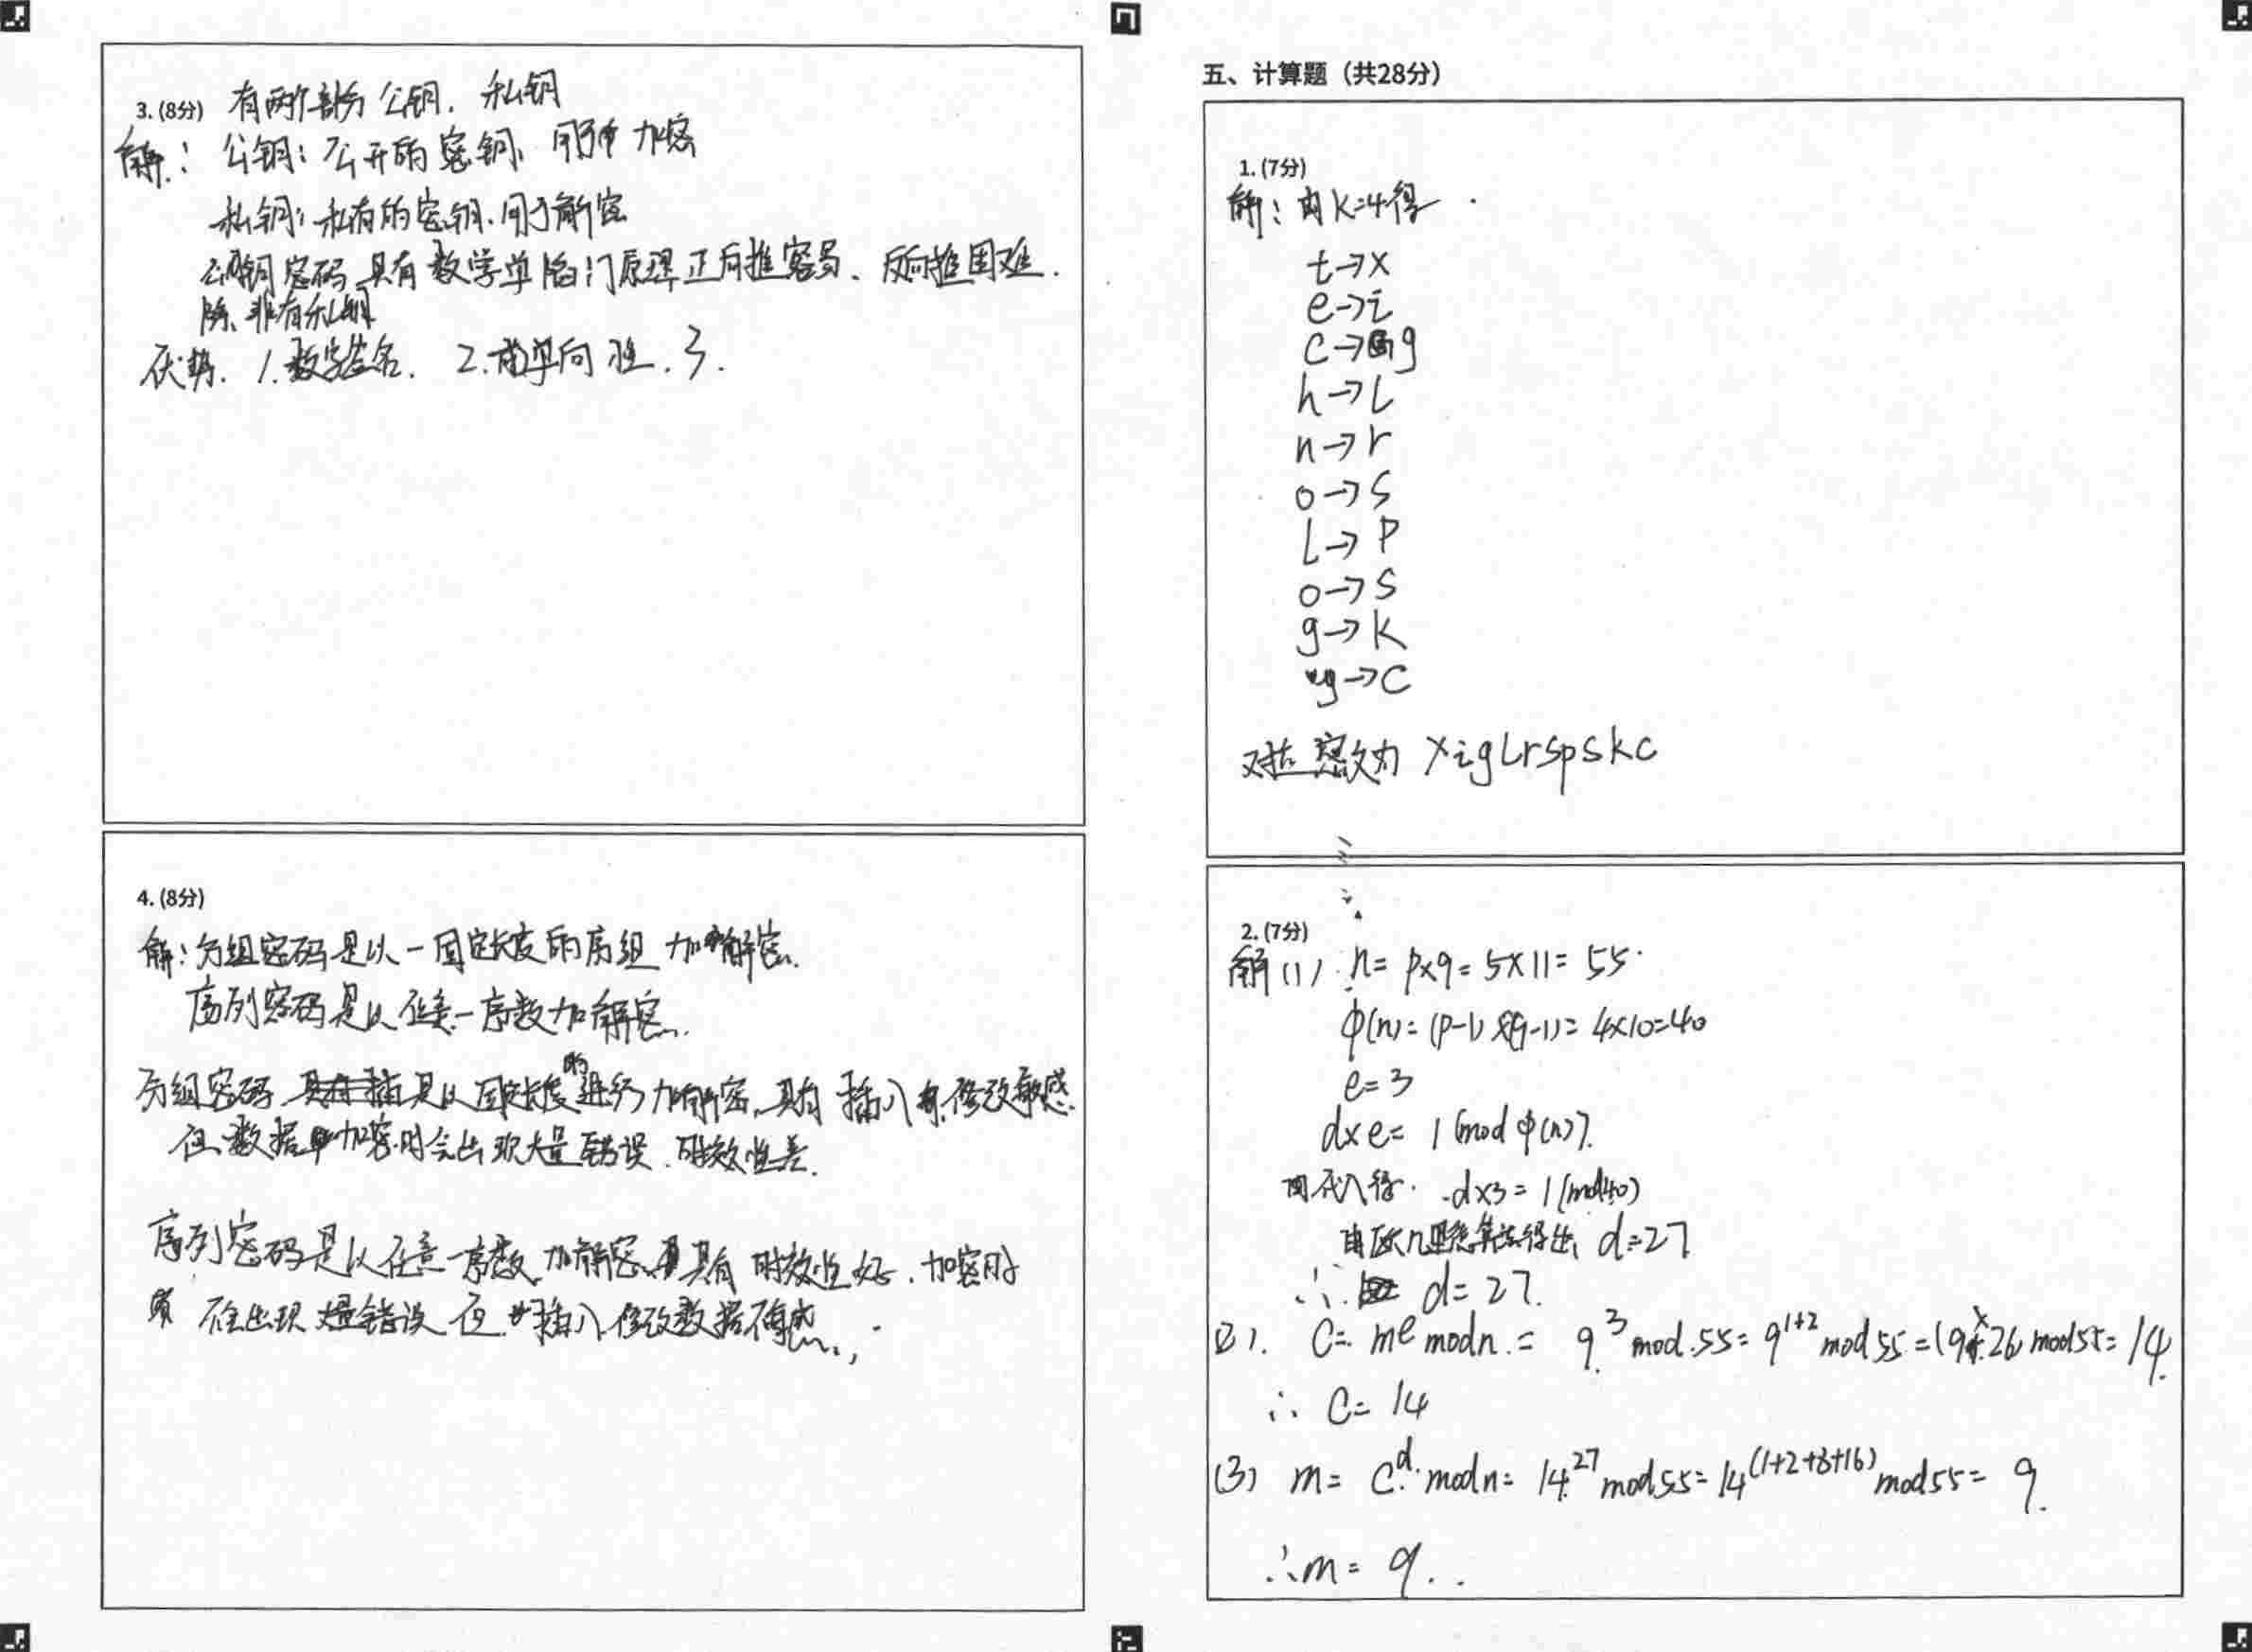 3. (8分) 有两个部分 公钥. 私钥
解: 公钥: 公开的密钥, 用于 加密
私钥: 私有的密钥. 用于解密
公钥密码 具有 数学单陷门原理 正向推容易、反向推困难.
除非有私钥
优势. 1. 数字签名. 2. 单向性. 3.
4. (8分)
解: 分组密码是以一固定长度的 组 加解密.
序列密码是以任意一序数加解密.
分组密码 是以固定长度的进行加解密, 具有 插入 修改敏感
但 数据 加密时会出现大量错误. 时效性差.
序列密码是以任意一序数 加解密, 具有 时效性好. 加密时
不会出现大量错误 但 插入 修改数据
五、计算题（共28分）
1. (7分)
解: 由K=4得
t→x
e→i
c→g
h→L
n→r
o→s
L→P
o→s
g→k
y→c
对应密文为 xigLrspskc
2. (7分)
解(1) n= p×q= 5×11= 55.
φ(n)= (p-1)×(q-1)= 4×10=40
e=3
d×e= 1 (mod φ(n)).
代入得. d×3= 1 (mod40)
由欧几里德算法得出 d=27
∴ d=27.
(2). C= m^e mod n = 9^3 mod 55= 9^1+2 mod 55= (9×26 mod55= 14.
∴ C= 14
(3) m= C^d mod n= 14^27 mod 55= 14^(1+2+8+16) mod 55= 9.
∴ m= 9.